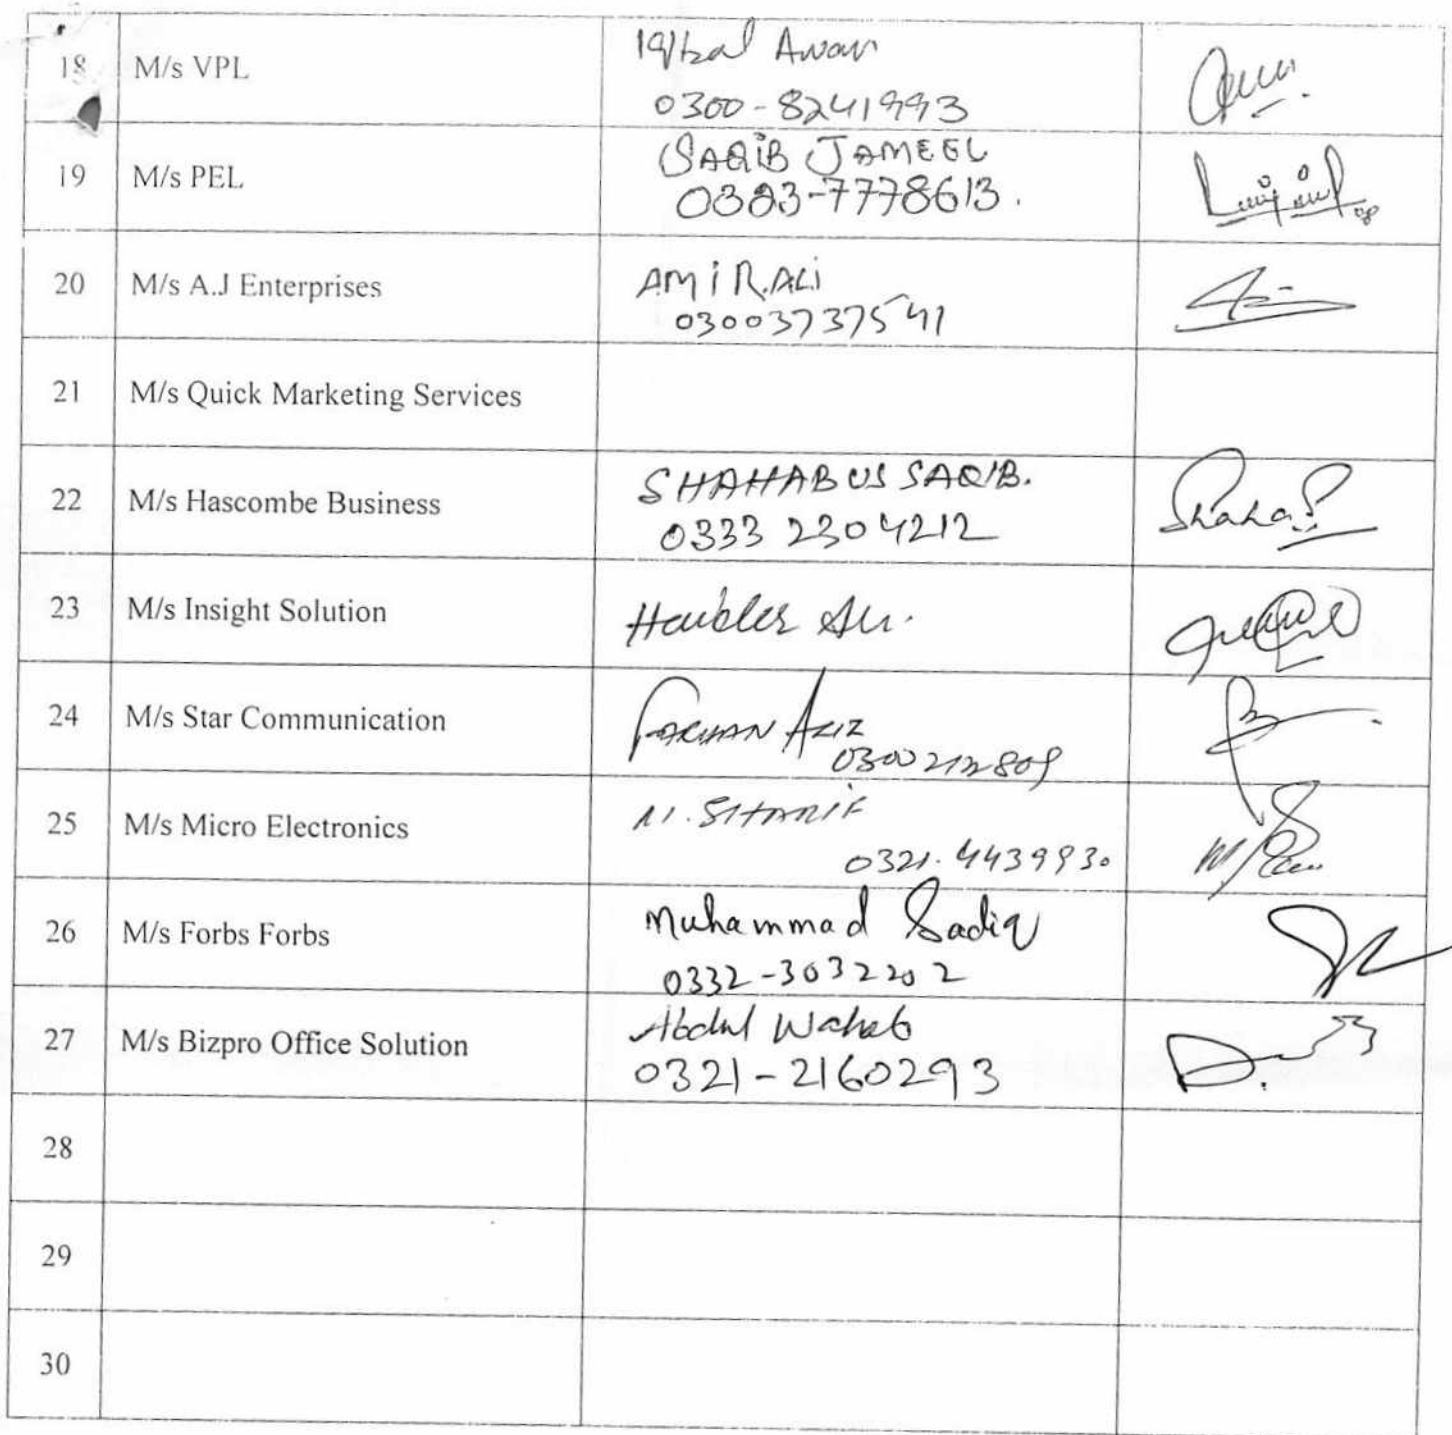 18
M/s VPL
Iqbal Awan
0300-8241993
19
M/s PEL
SAQIB JAMEEL
0333-7778613.
20
M/s A.J Enterprises
AMIR.ALI
03003737541
21
M/s Quick Marketing Services
22
M/s Hascombe Business
SHAHAB US SAQIB.
0333 2304212
Shahab
23
M/s Insight Solution
Ali.
24
M/s Star Communication
FARHAN AZIZ
25
M/s Micro Electronics
M. SHARIF
0321.4439930
26
M/s Forbs Forbs
Muhammad Sadiq
0332-3032202
27
M/s Bizpro Office Solution
Abdul Wahab
0321-2160293
28
29
30